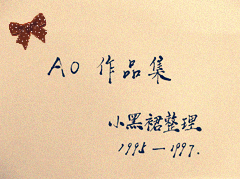 AO 作品集
小黑裙整理
1995—1997.